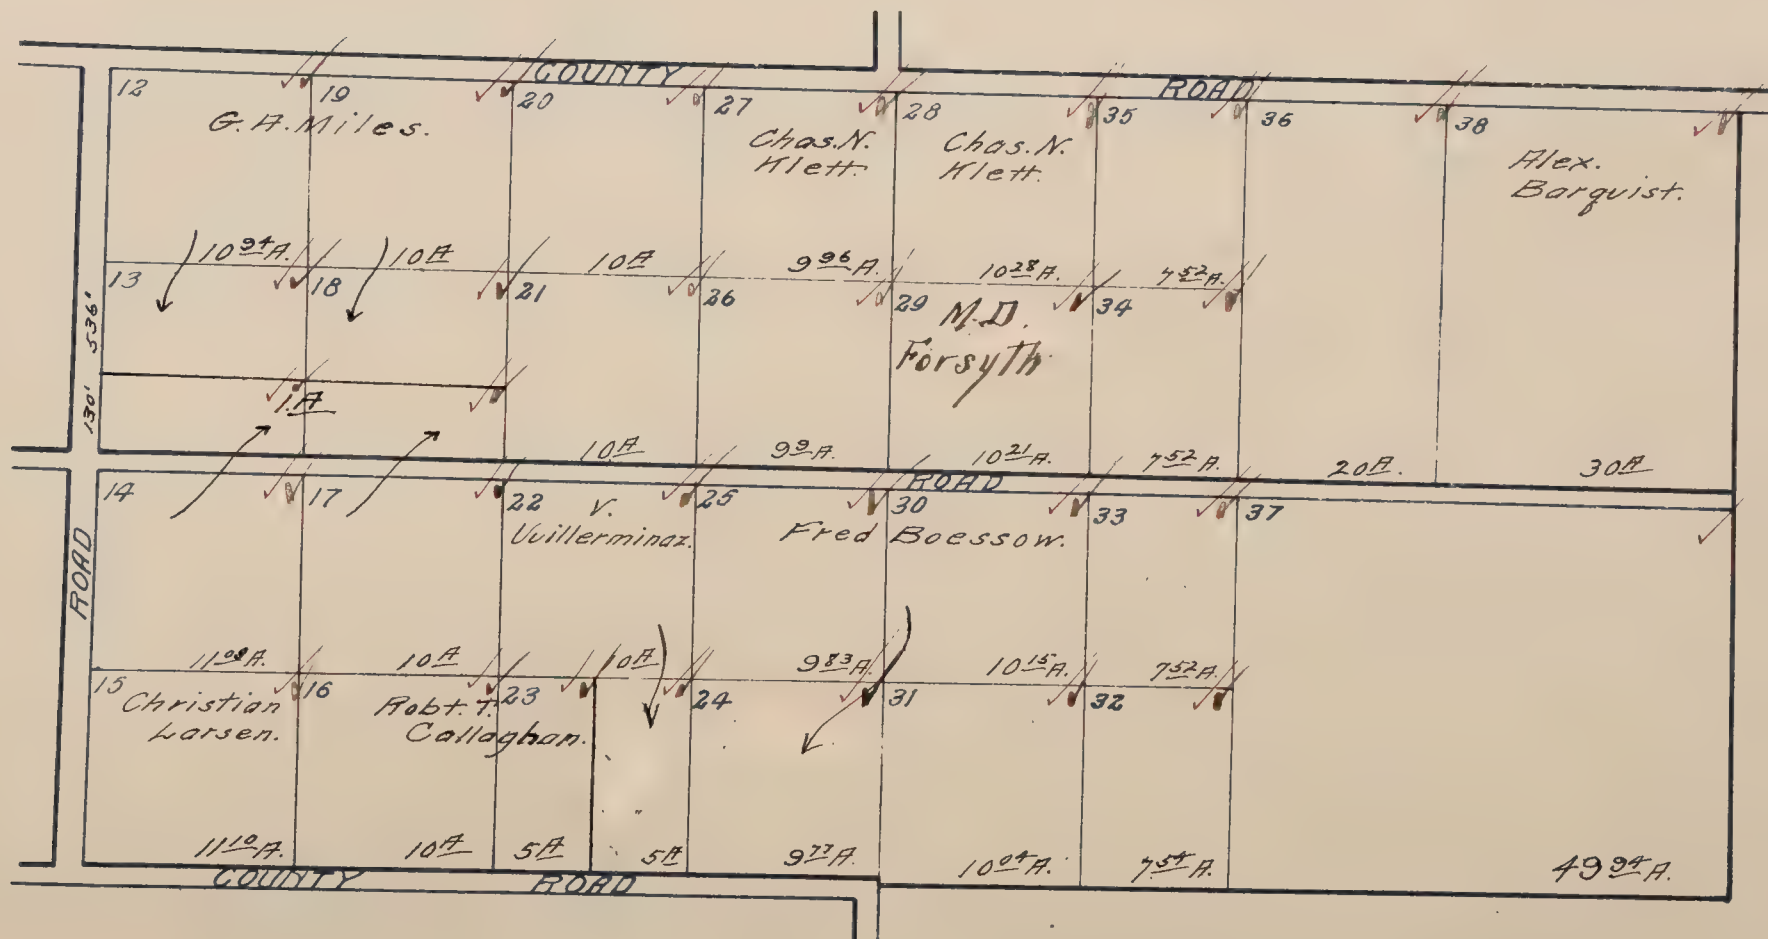 COUNTY ROAD
12 19 20 27 28 35 36 38
G.A. Miles.
Chas. N.
Klett.
Chas. N.
Klett.
Alex.
Barquist.
10 94 A. 10 A 10 A 9 96 A. 10 28 A. 7 52 A.
13 18 21 26 29 34
M.D.
Forsyth
536'
130'
1. A
10 A 9 9 A. 10 21 A. 7 52 A. 20 A. 30 A
ROAD
14 17 22 25 30 33 37
V.
Vuillerminaz.
Fred Boessow.
ROAD
11 08 A. 10 A 10 A 9 83 A 10 15 A. 7 52 A.
15 16 23 24 31 32
Christian
Larsen.
Robt. T.
Callaghan.
11 10 A. 10 A 5 A 5 A 9 77 A. 10 04 A. 7 54 A. 49 94 A.
COUNTY ROAD